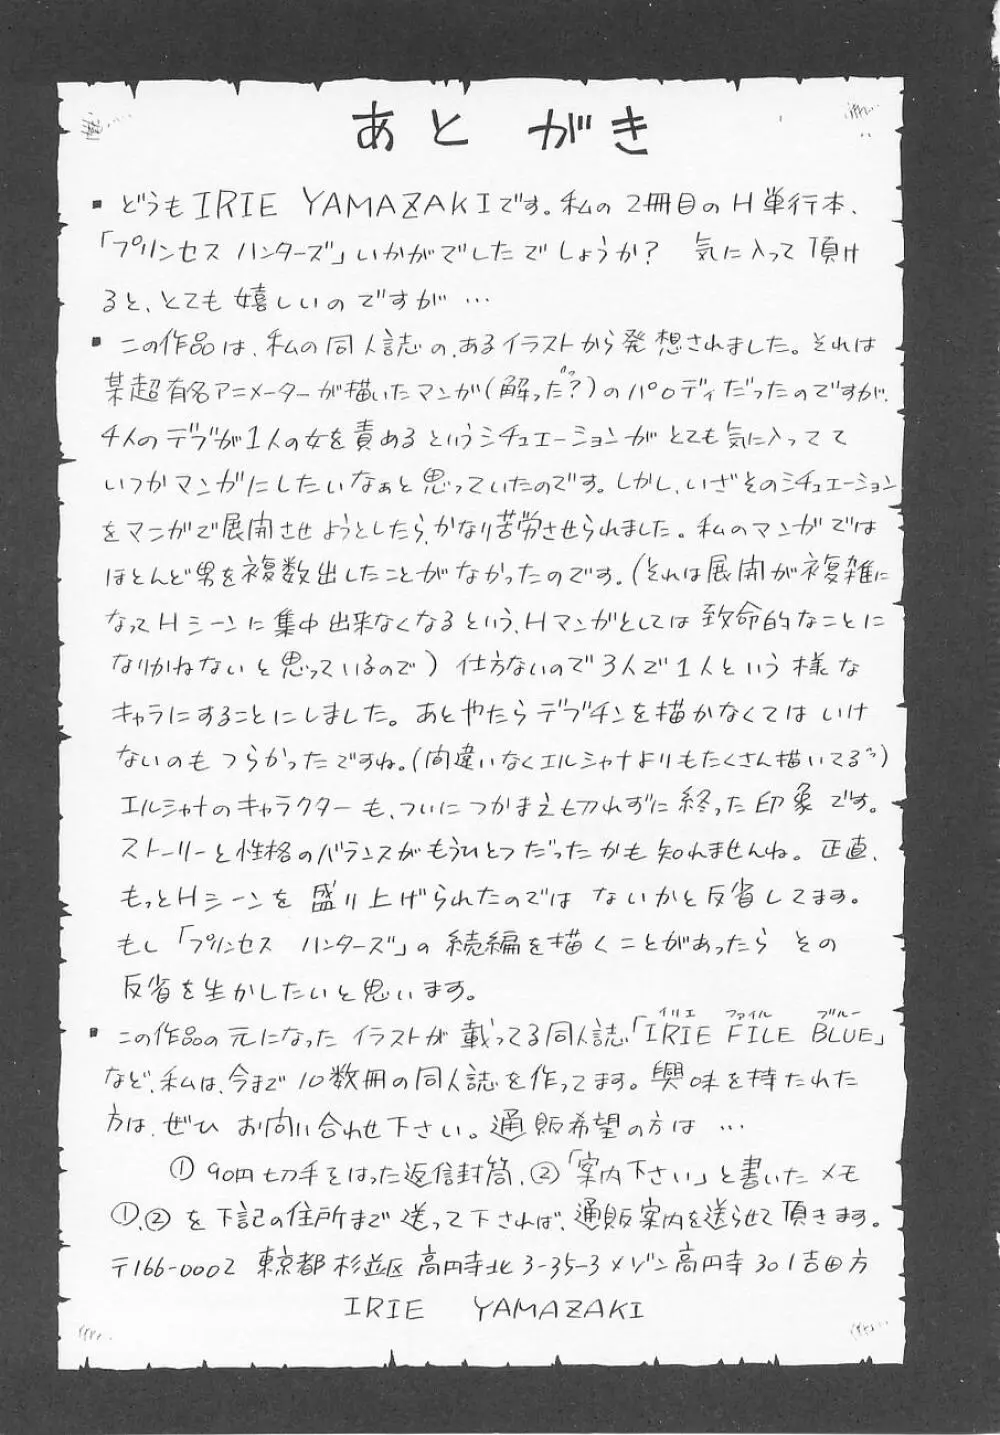 あとがき
▪ どうも IRIE YAMAZAKI です。私の2冊目のH単行本、
「プリンセス ハンターズ」いかがでしたでしょうか? 気に入って頂け
ると、とても嬉しいのですが…
▪ この作品は、私の同人誌の、あるイラストから発想されました。それは
某超有名アニメーターが描いたマンガ(解った?)のパロディだったのですが、
4人のデブが1人の女を責めるというシチュエーションがとても気に入ってて
いつかマンガにしたいなぁと思っていたのです。しかし、いざそのシチュエーション
をマンガで展開させようとしたら、かなり苦労させられました。私のマンガでは
ほとんど男を複数出したことがなかったのです。(それは展開が複雑に
なってHシーンに集中出来なくなるという、Hマンガとしては致命的なことに
なりかねないと思っているので) 仕方ないので3人で1人という様な
キャラにすることにしました。あとやたらデブチンを描かなくてはいけ
ないのもつらかったですね。(間違いなくエルシャナよりもたくさん描いてるっ)
エルシャナのキャラクターも、ついにつかまえ切れずに終った印象です。
ストーリーと性格のバランスがもうひとつだったかも知れませんね。正直、
もっとHシーンを盛り上げられたのではないかと反省してます。
もし「プリンセス ハンターズ」の続編を描くことがあったら その
反省を生かしたいと思います。
イリエ ファイル ブルー
▪ この作品の元になったイラストが載ってる同人誌「IRIE FILE BLUE」
など、私は、今まで10数冊の同人誌を作ってます。興味を持たれた
方は、ぜひ お問い合わせ下さい。通販希望の方は…
①90円切手をはった返信封筒、②「案内下さい」と書いたメモ
①、②を下記の住所まで送って下されば、通販案内を送らせて頂きます。
〒166-0002 東京都杉並区高円寺北3-35-3メゾン高円寺301吉田方
IRIE YAMAZAKI